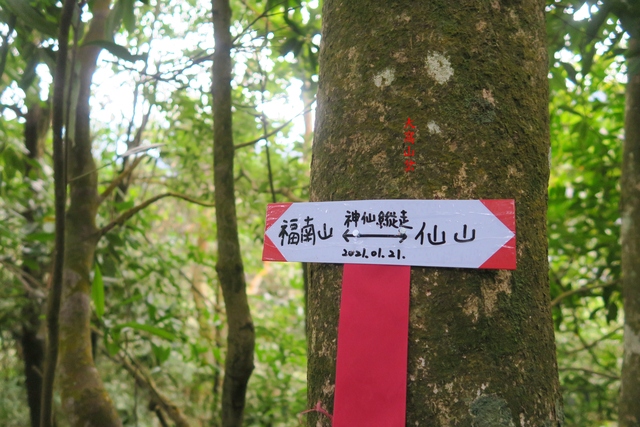 福南山
神仙縱走
仙山
2021.01.21.